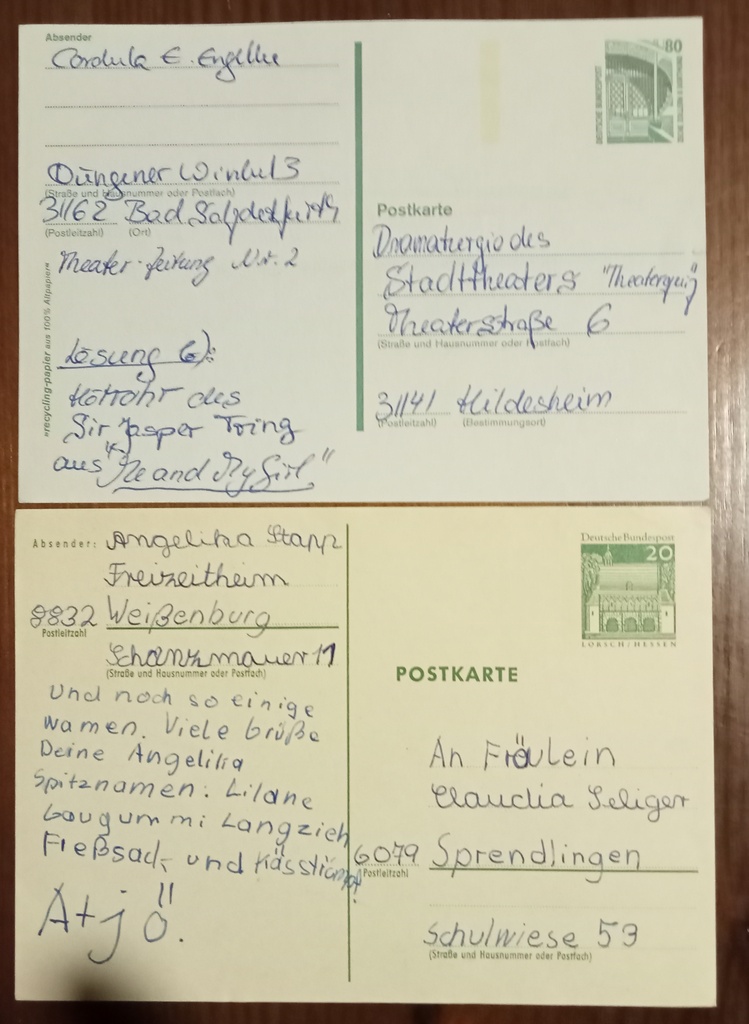 Absender
Cordula E. Engelke
Düngener Winkel 3
(Straße und Hausnummer oder Postfach)
31162 Bad Salzdetfurth
(Postleitzahl) (Ort)
Theater-Zeitung Nr. 2
«recycling-papier aus 100% Altpapier»
Lösung 6):
Hörrohr des
Sir Jasper Tring
aus "Me and My Girl"
80
DEUTSCHE BUNDESPOST
Postkarte
Dramaturgie des
Stadttheaters "Theaterquiz"
Theaterstraße 6
(Straße und Hausnummer oder Postfach)
31141 Hildesheim
(Postleitzahl) (Bestimmungsort)
Absender: Angelika Stapp
Freizeitheim
8832 Weißenburg
Postleitzahl
Schanzmauer 11
(Straße und Hausnummer oder Postfach)
Und noch so einige
Namen. Viele Grüße
Deine Angelika
Spitznamen: Lilane
Gaugummi Langzieh
Fleßsack und
Atjö!!
Deutsche Bundespost
20
LORSCH/HESSEN
POSTKARTE
An Fräulein
Claudia Seliger
6079 Sprendlingen
Postleitzahl
Schulwiese 53
(Straße und Hausnummer oder Postfach)